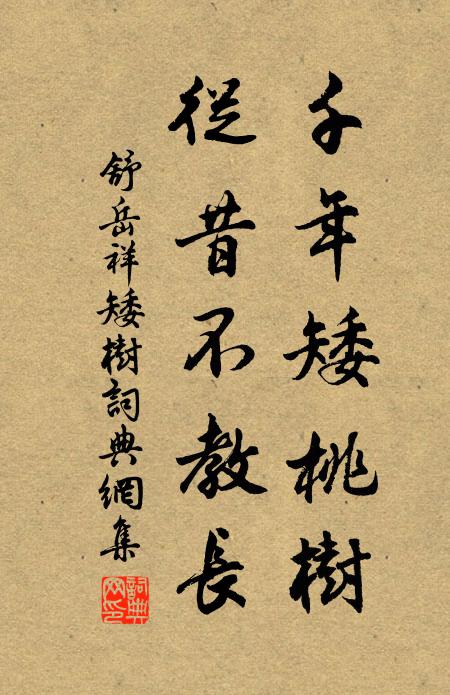 千年矮桃樹
從昔不教長
舒岳祥矮樹詞典網集
詞典網印